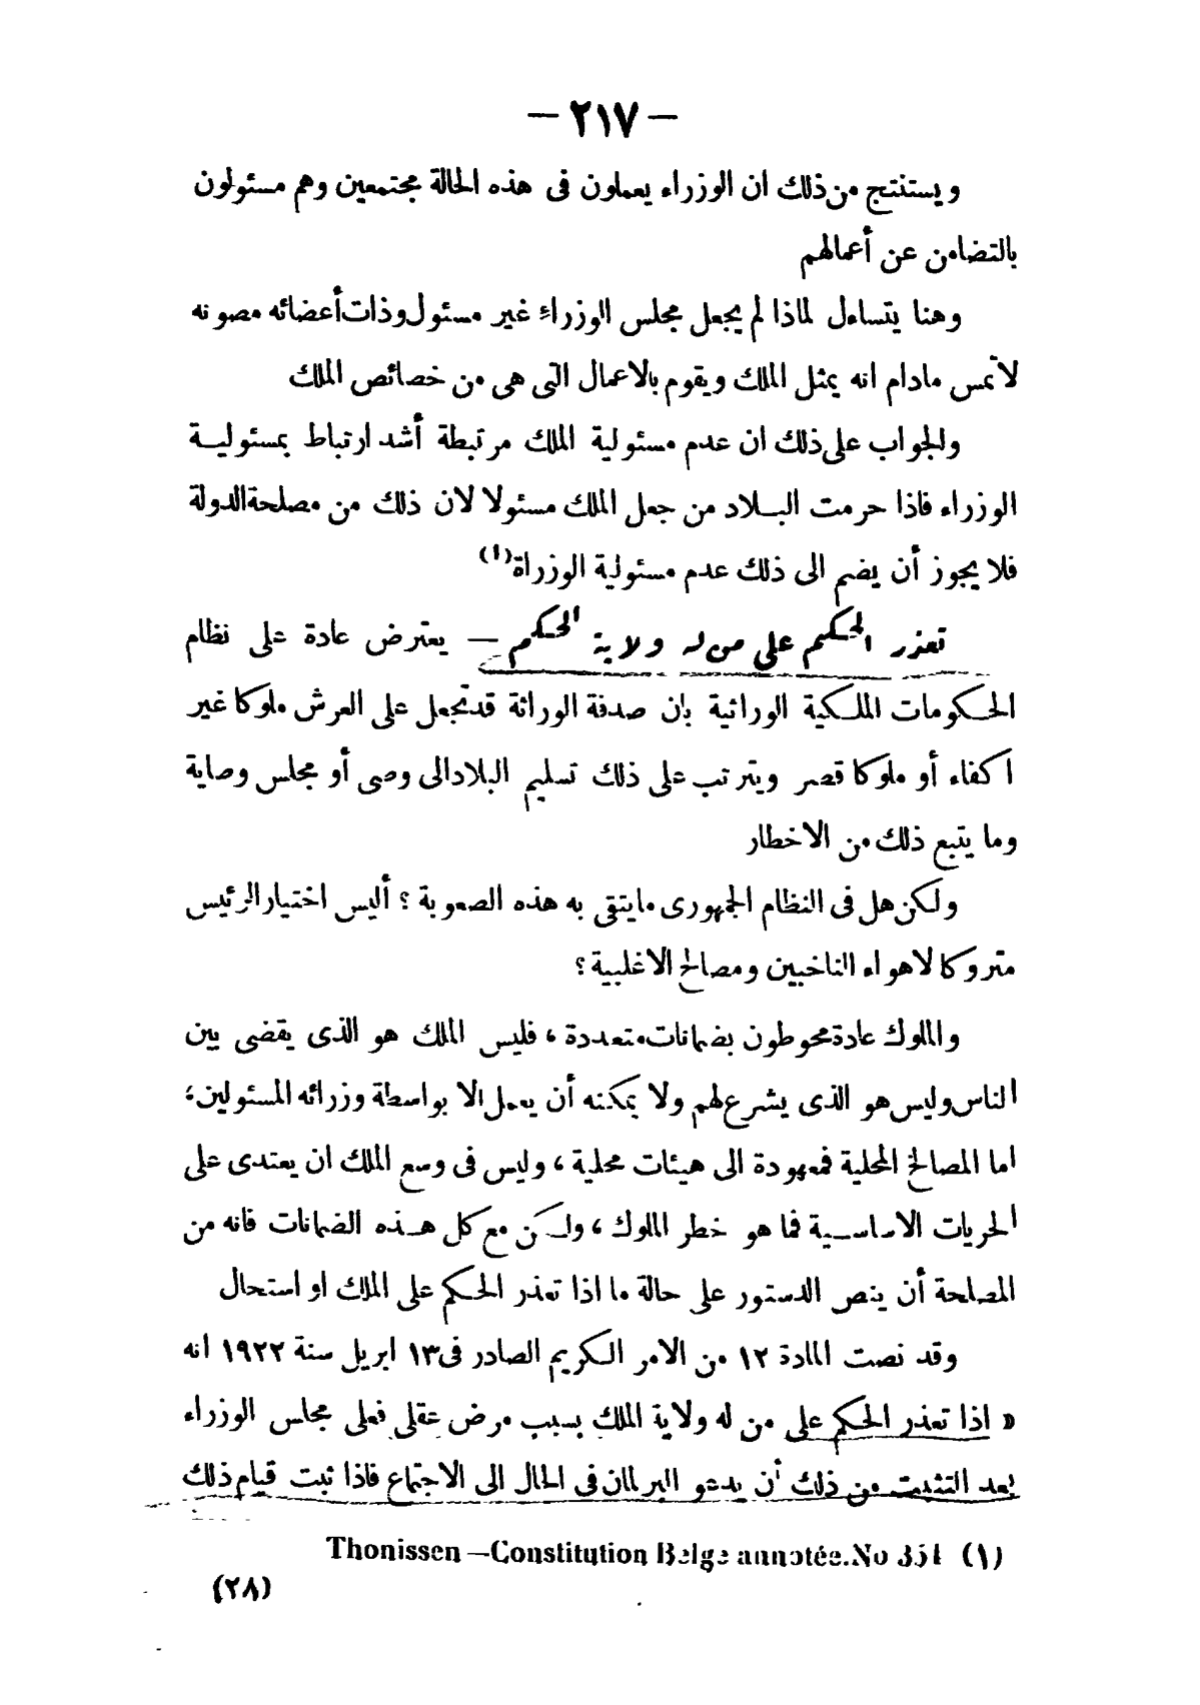 — ٢١٧ —
ويستنتج من ذلك ان الوزراء يعملون فى هذه الحالة مجتمعين وهم مسئولون
بالتضامن عن أعمالهم
وهنا يتساءل لماذا لم يجعل مجلس الوزراء غير مسئول وذات أعضائه مصونه
لاتمس مادام انه يمثل الملك ويقوم بالاعمال التى هى من خصائص الملك
والجواب على ذلك ان عدم مسئولية الملك مرتبطة أشد ارتباط بمسئولية
الوزراء فاذا حرمت البلاد من جعل الملك مسئولا لان ذلك من مصلحة الدولة
فلا يجوز أن يضم الى ذلك عدم مسئولية الوزراة(١)
تعذر الحكم على من له ولاية الحكم — يعترض عادة على نظام
الحكومات الملكية الوراثية بان صدفة الوراثة قد تجعل على العرش ملوكا غير
اكفاء أو ملوكا قصر ويترتب على ذلك تسليم البلاد الى وصى أو مجلس وصاية
وما يتبع ذلك من الاخطار
ولكن هل فى النظام الجمهورى مايتقى به هذه الصعوبة ؟ أليس اختيار الرئيس
متروكا لاهواء الناخبين ومصالح الاغلبية ؟
والملوك عادة محوطون بضمانات متعددة ، فليس الملك هو الذى يقضى بين
الناس وليس هو الذى يشرع لهم ولا يمكنه أن يعمل الا بواسطة وزرائه المسئولين ،
اما المصالح المحلية فمعهودة الى هيئات محلية ، وليس فى وسع الملك ان يعتدى على
الحريات الاساسية فما هو خطر الملوك ، ولكن مع كل هذه الضمانات فانه من
المصلحة أن ينص الدستور على حالة ما اذا تعذر الحكم على الملك او استحال
وقد نصت المادة ١٢ من الامر الكريم الصادر فى ١٣ ابريل سنة ١٩٢٢ انه
« اذا تعذر الحكم على من له ولاية الملك بسبب مرض عقلى فعلى مجلس الوزراء
بعد التثبت من ذلك أن يدعو البرلمان فى الحال الى الاجتماع فاذا ثبت قيام ذلك
(١) Thonissen — Constitution Belge annotée. No 351
(٢٨)